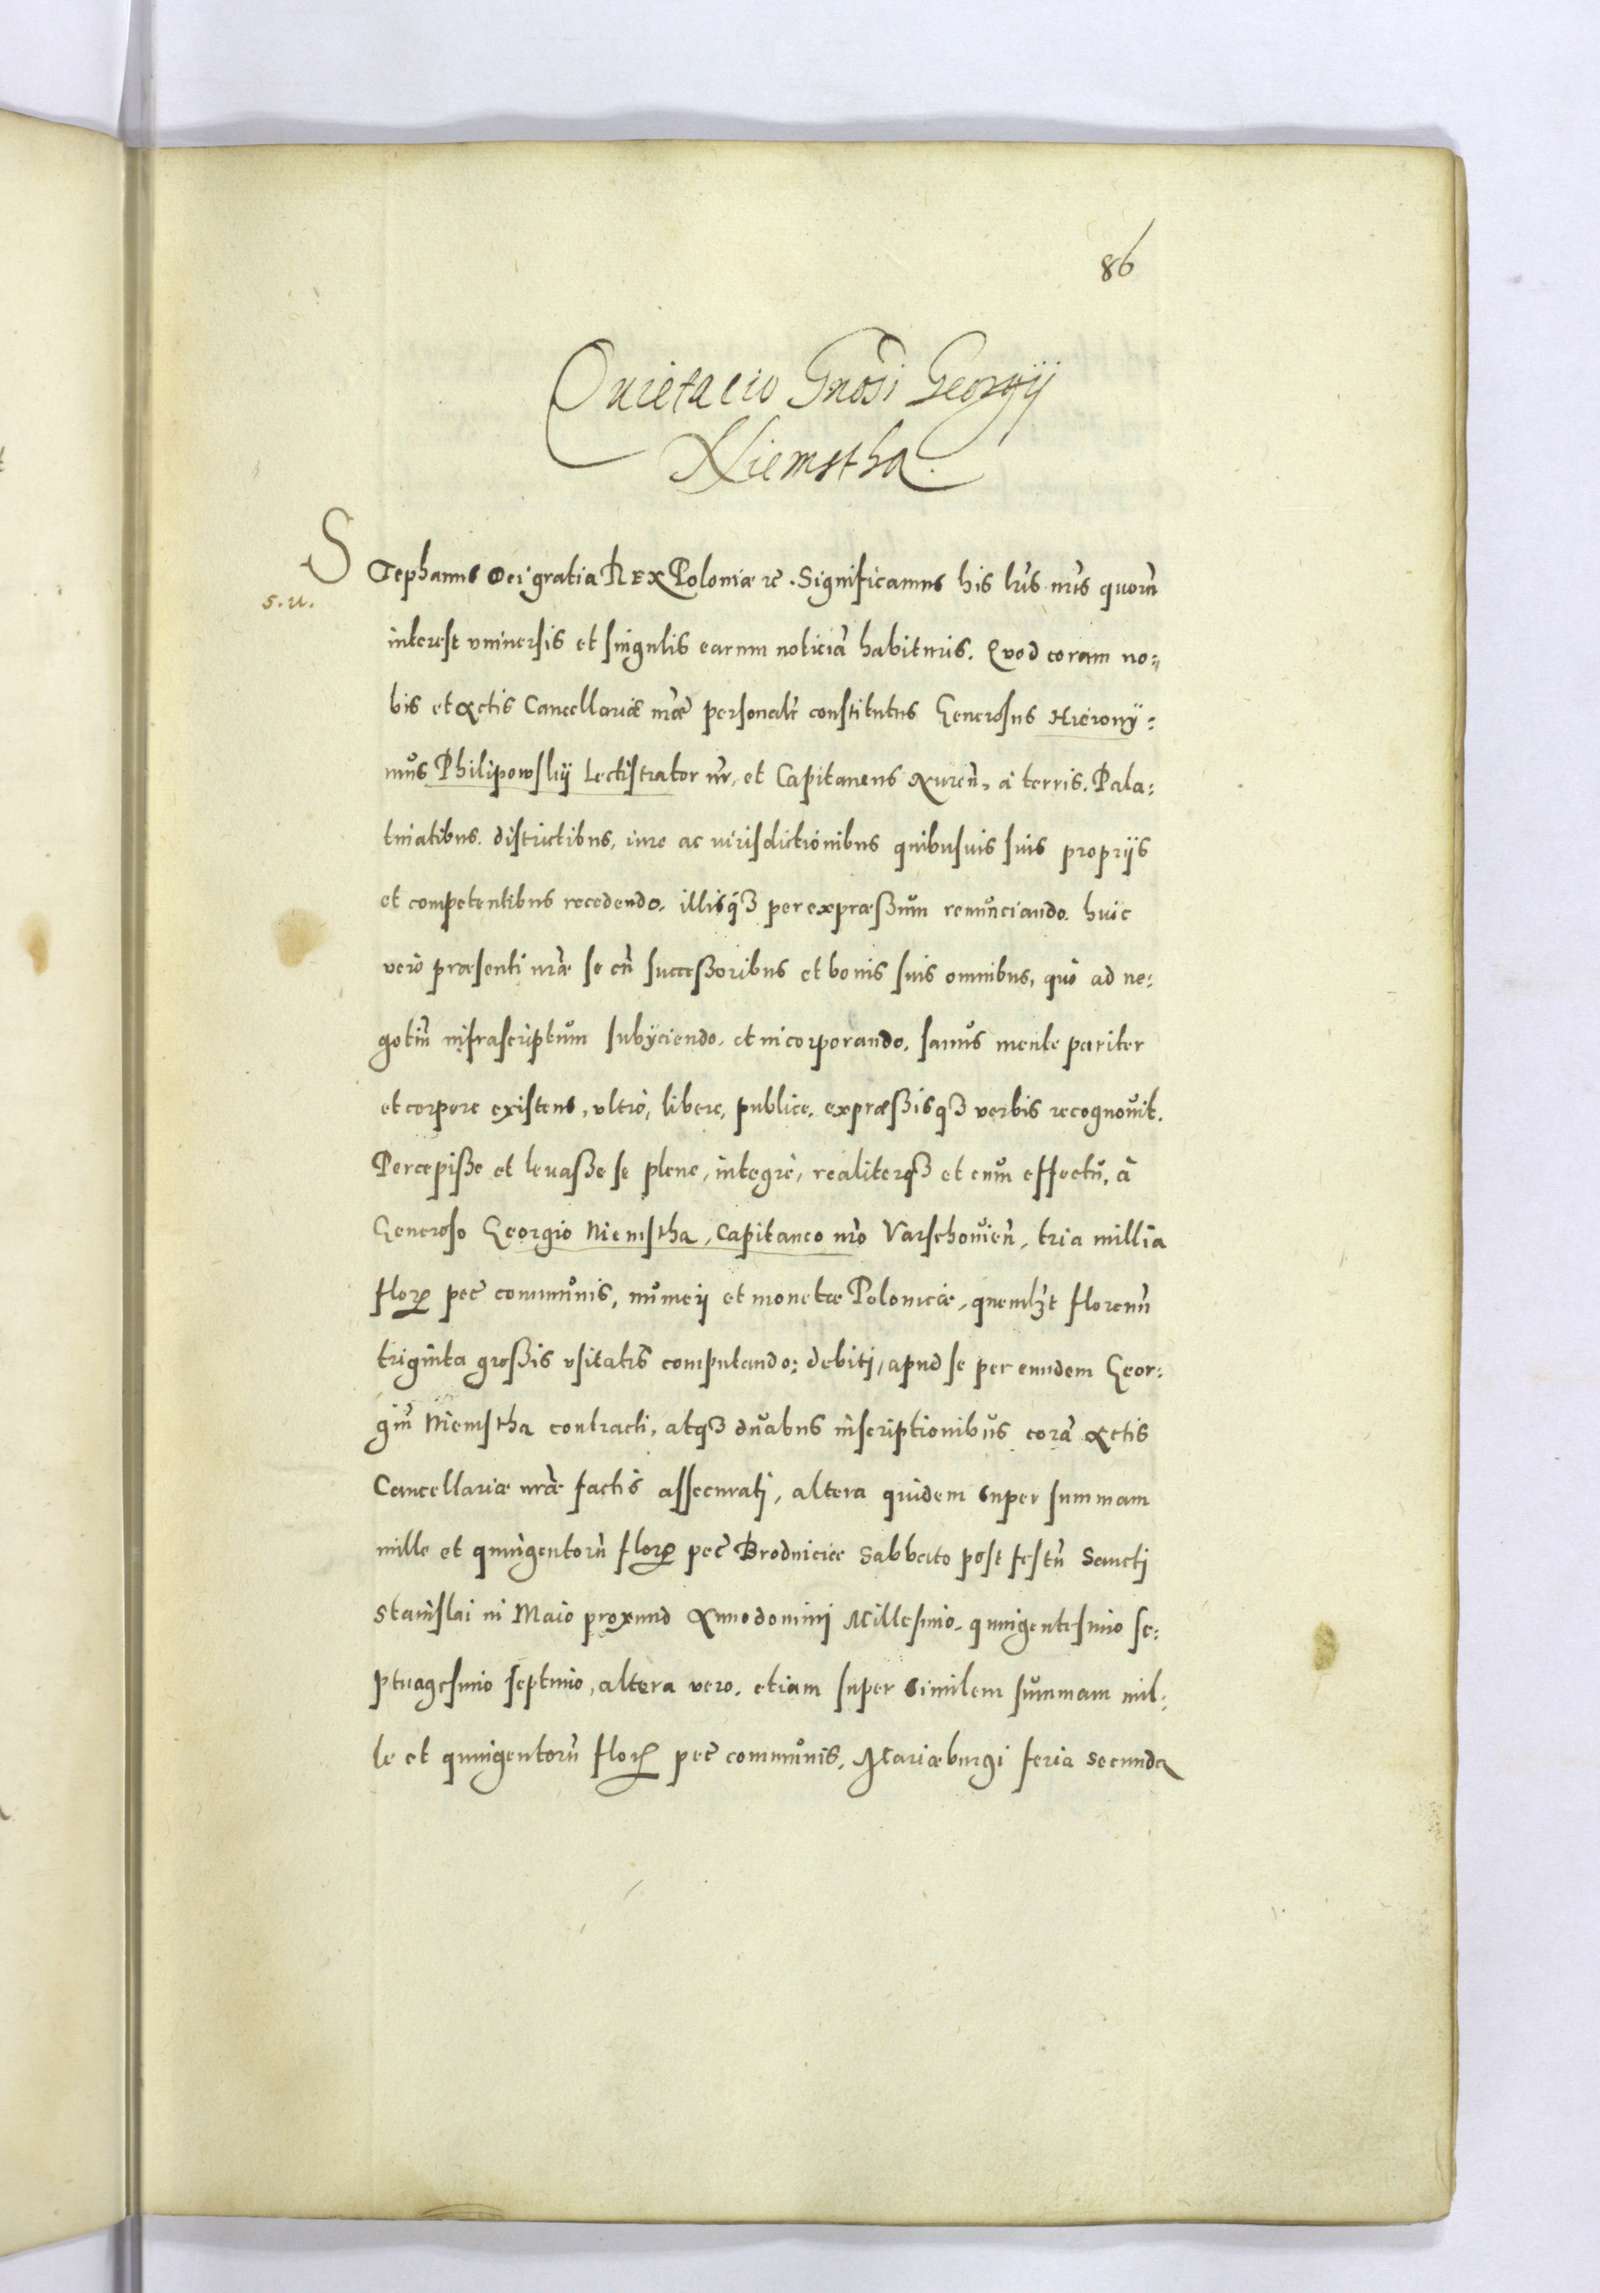 86
Quietacio Gnosi Georgij
Niemstha.
STephanus Dei gratia REX Poloniæ rc. Significamus his lris nris quorũ
s. u.
interest vniuersis et singulis earum noticiã habituris. Quod coram no=
bis et Actis Cancellariæ nræ personalr constitutus Generosus Hierony=
mus Philipowskij Lectistrator nr, et Capitaneus Auren, à terris, Pala=
tinatibus, districtibus, iure ac iurisdictionibus quibusuis suis proprijs
et competentibus recedendo, illisq3 per expræßum renunciando, huic
verò præsenti nræ se cũ successoribus et bonis suis omnibus, quò ad ne=
gotiũ infrascriptum subijciendo, et incorporando, sanus mente pariter
et corpore existens, vltrò, libere, publice, expræßisq3 verbis recognouit.
Percepiße et leuaße se plene, integrè, realiterq3 et cum effectu, à
Generoso Georgio Niemstha, Capitaneo nro Varschouien, tria millia
florũ pec communis, numeri et monetæ Polonicæ, quemlzt florenũ
triginta großis vsitatis computando; debiti, apud se per eundem Geor=
giũ Niemstha contracti, atq3 duabus inscriptionibus corã Actis
Cancellariæ nræ factis assecurati, altera quidem super summam
mille et quingentorũ florũ pec Brodniciæ Sabbato post festũ Sancti
Stanislai in Maio proximo Anno domini Millesimo, quingentesimo se=
ptuagesimo septimo, altera vero, etiam super similem summam mil=
le et quingentorũ florũ pec communis, Mariæburgi feria secunda